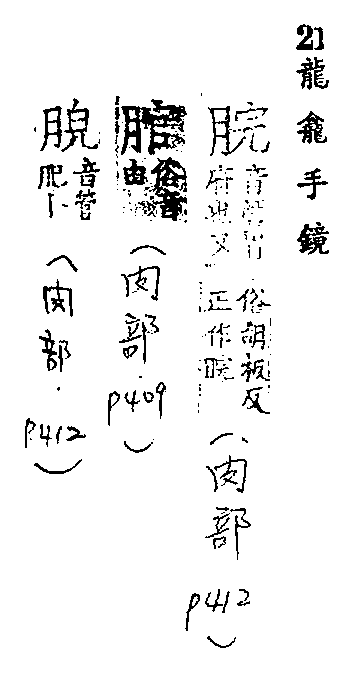 21 龍龕手鏡
脘 音管胃
府也又
俗胡板反
正作
(肉部 p412)
俗音
由
(肉部. p409)
音管
(肉部. p412)